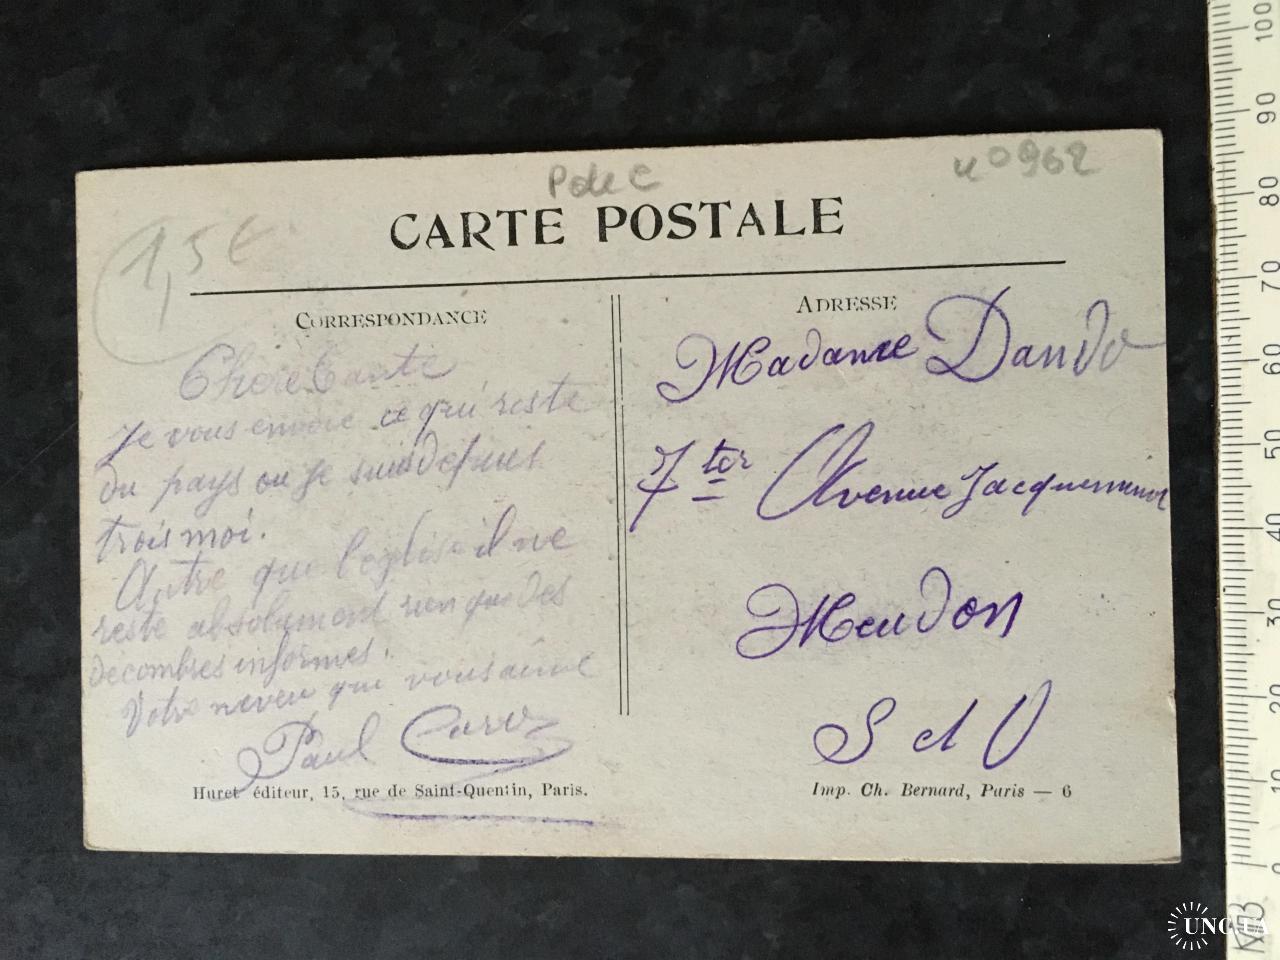 n° 962
CARTE POSTALE
1,5 €
CORRESPONDANCE
Chère Tante
Je vous envoie ce qui reste
du pays ou je suis depuis
trois moi.
Autre que l'eglise il ne
reste absolument rien que des
decombres informes.
Votre neveu qui vous aime
Paul
Huret éditeur, 15, rue de Saint-Quentin, Paris.
ADRESSE
Madame Dando
7 ter Avenue Jacqueminot
Meudon
S et O
Imp. Ch. Bernard, Paris — 6
100
90
80
70
60
50
40
30
20
10
0
UNC.UA